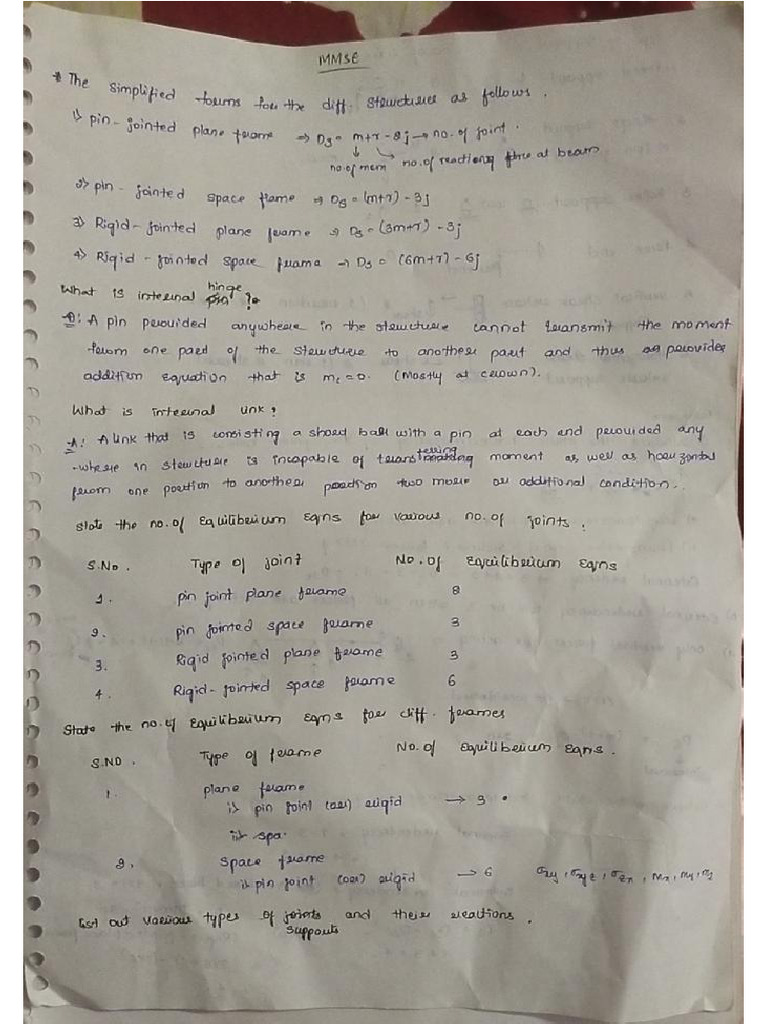 MMSE
* The simplified forms for the diff. structures as follows.
1) pin-jointed plane frame ⇒ Ds = m+r-2j → no. of joint.
no. of mem no. of reaction force at beam
2) pin-jointed space frame ⇒ Ds = (m+r) - 3j
3) Rigid-jointed plane frame ⇒ Ds = (3m+r) - 3j
4) Rigid-jointed space frama ⇒ Ds = (6m+r) - 6j
What is internal hinge?
A: A pin provided anywhere in the structure cannot transmit the moment
from one part of the structure to another part and thus as provides
addition equation that is mc=0. (mostly at crown).
What is internal link?
A: A link that is consisting a short bar with a pin at each end provided any
-where in structure is incapable of transferring moment as well as horizontal
from one portion to another portion two more or additional condition.
State the no. of Equilibrium Eqns for various no. of joints.
S.No. Type of joint No. of Equilibrium Eqns
1. pin joint plane frame 2
2. pin jointed space frame 3
3. Rigid jointed plane frame 3
4. Rigid-jointed space frame 6
State the no. of Equilibrium Eqns for diff. frames
S.NO. Type of frame No. of Equilibrium Eqns.
1. plane frame
i) pin joint (or) rigid → 3
ii) spa.
2. space frame
i) pin joint (or) rigid → 6
List out various types of joints and their reactions.
supports